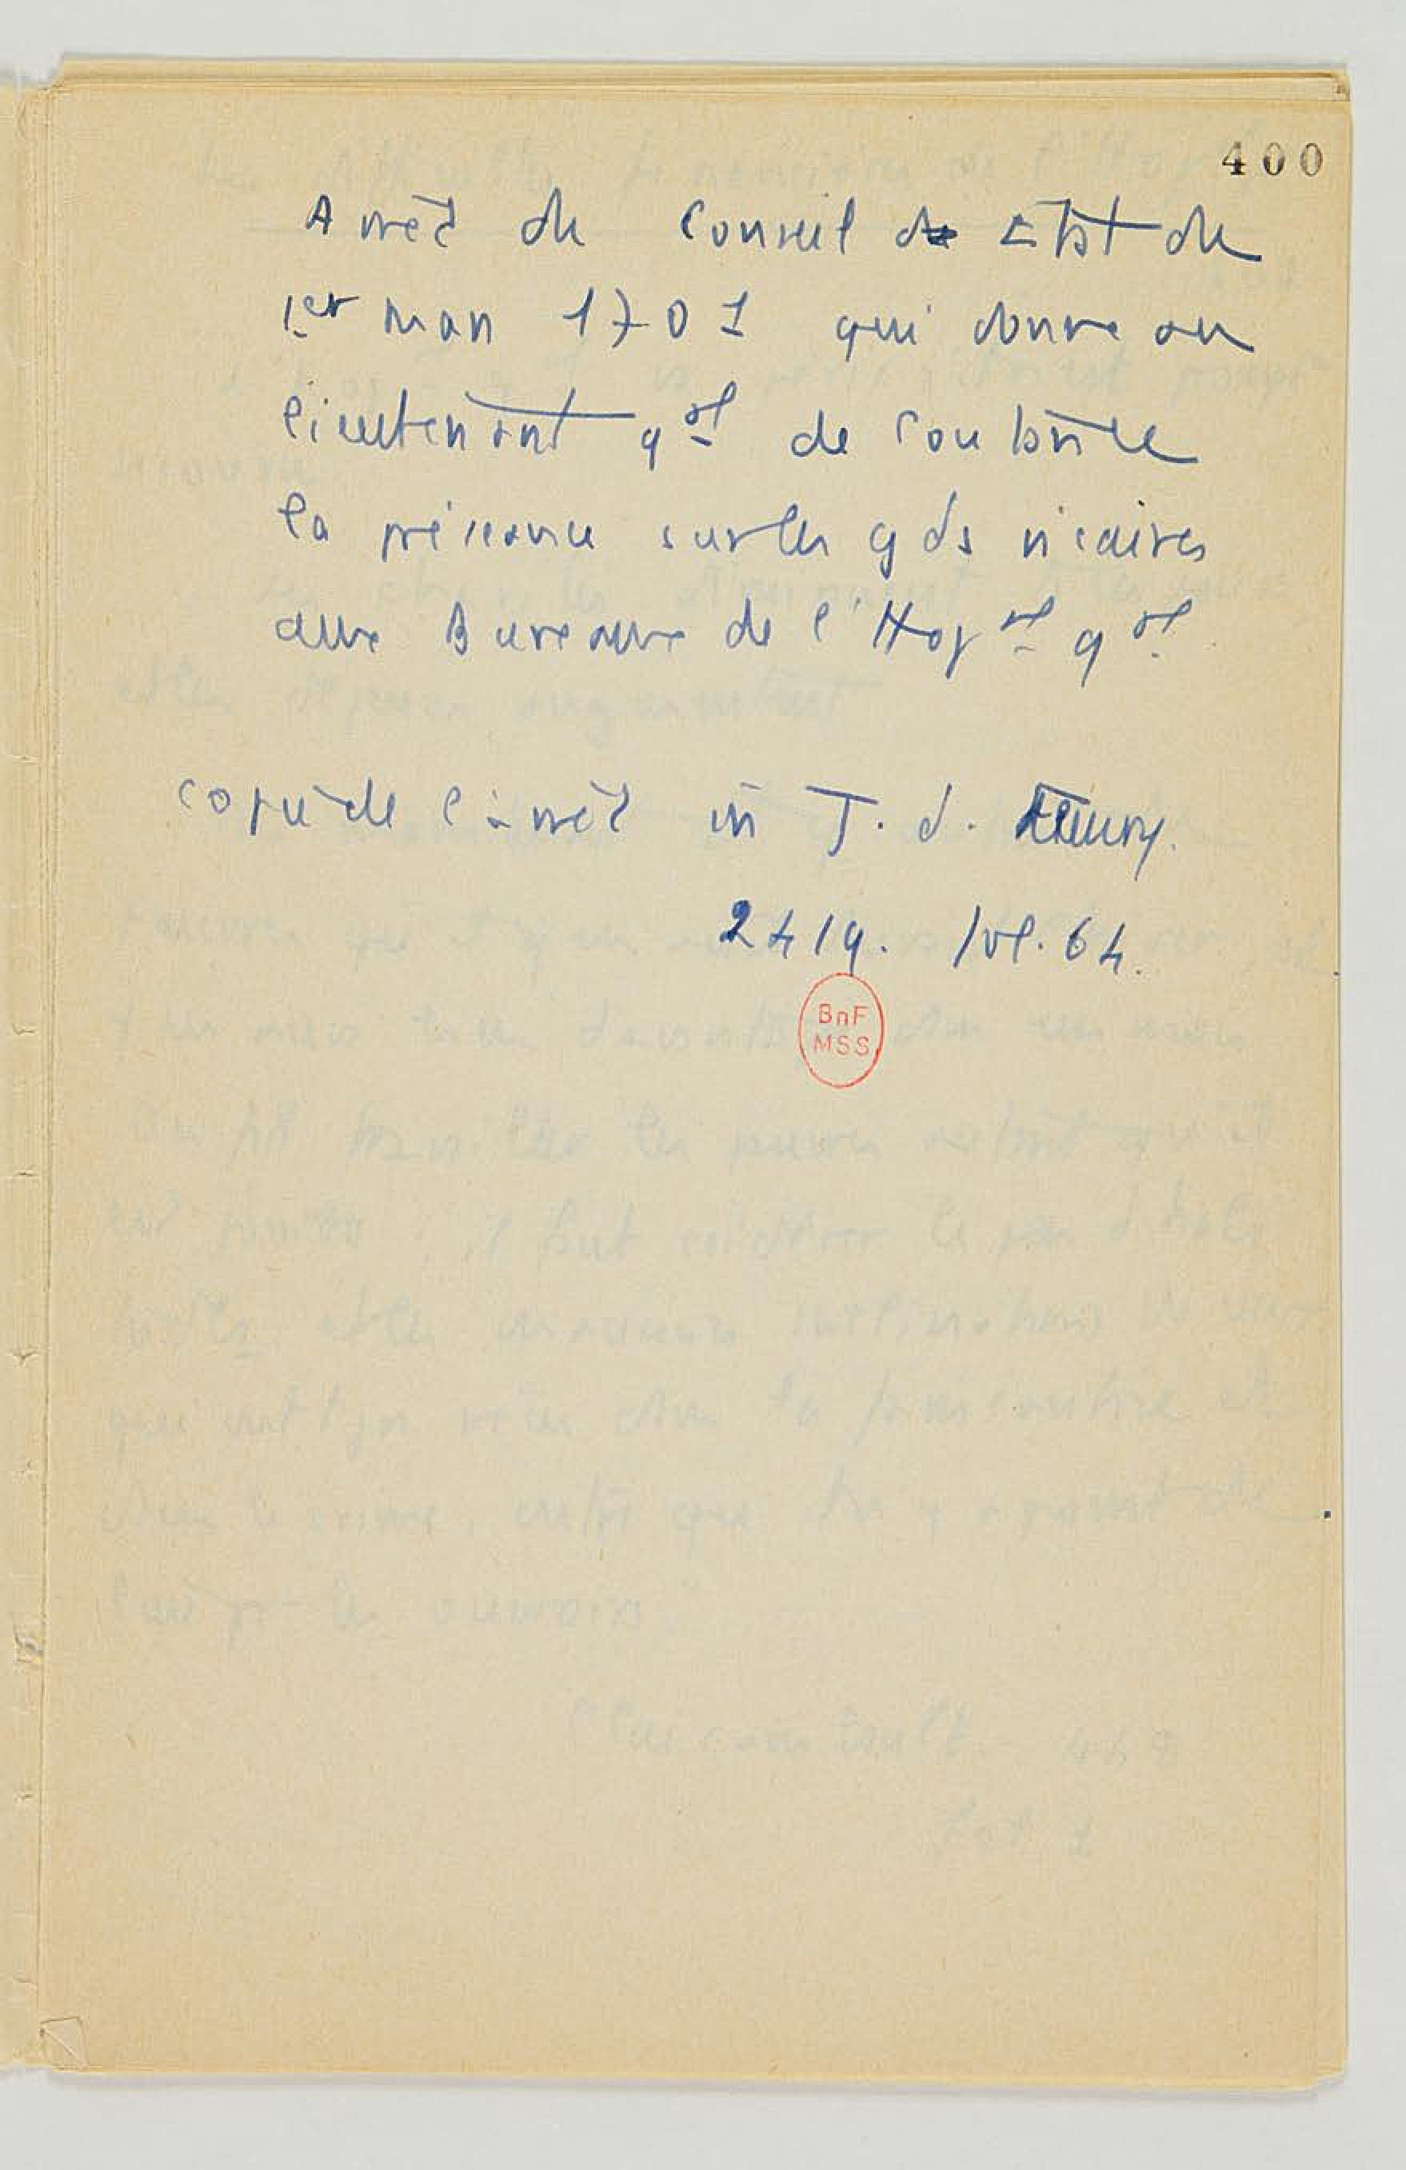 400
Arrêt du Conseil d'Etat du
1er mars 1701 qui donne au
lieutenant gal de Coutances
la préséance sur les gds vicaires
aux Bureaux de l'Hopal gal.
copie de l'arrêt in J. d. Fleury.
2419. fol. 64.
BnF
MSS